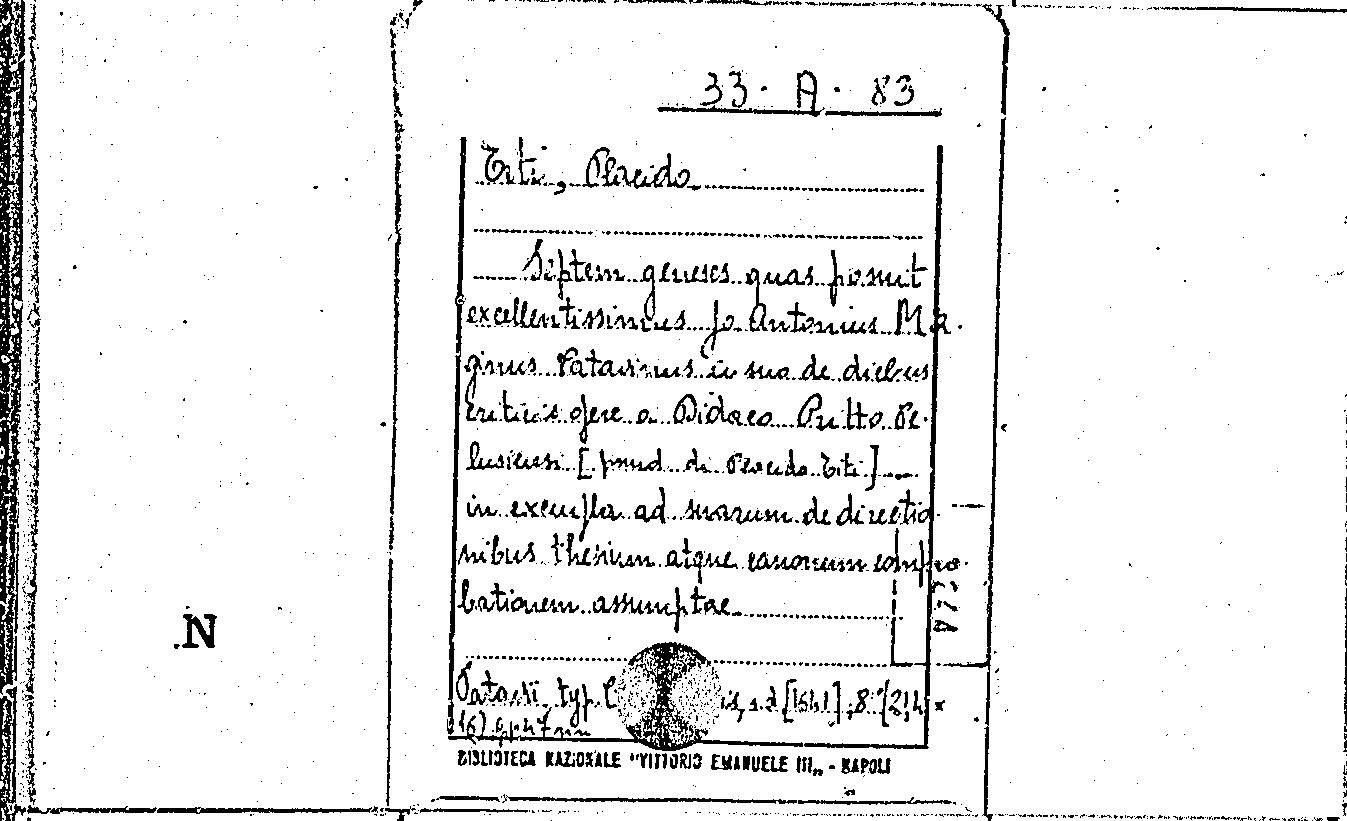 33. A. 83
Titi, Placido
Septem geneses quas posuit
excellentissimus Jo Antonius Ma.
ginus Patavinus in suo de diebus
criticis opere a Didaco Pritto Pe.
lusiensi [pseud. di Placido Titi]
in exempla ad suarum de directio.
nibus thesium atque canonum compro.
bationem assumptae
Patavii, typ. is, s.d. [1641], 8° (21,4 ×
16)
N
BIBLIOTECA NAZIONALE "VITTORIO EMANUELE III" - NAPOLI